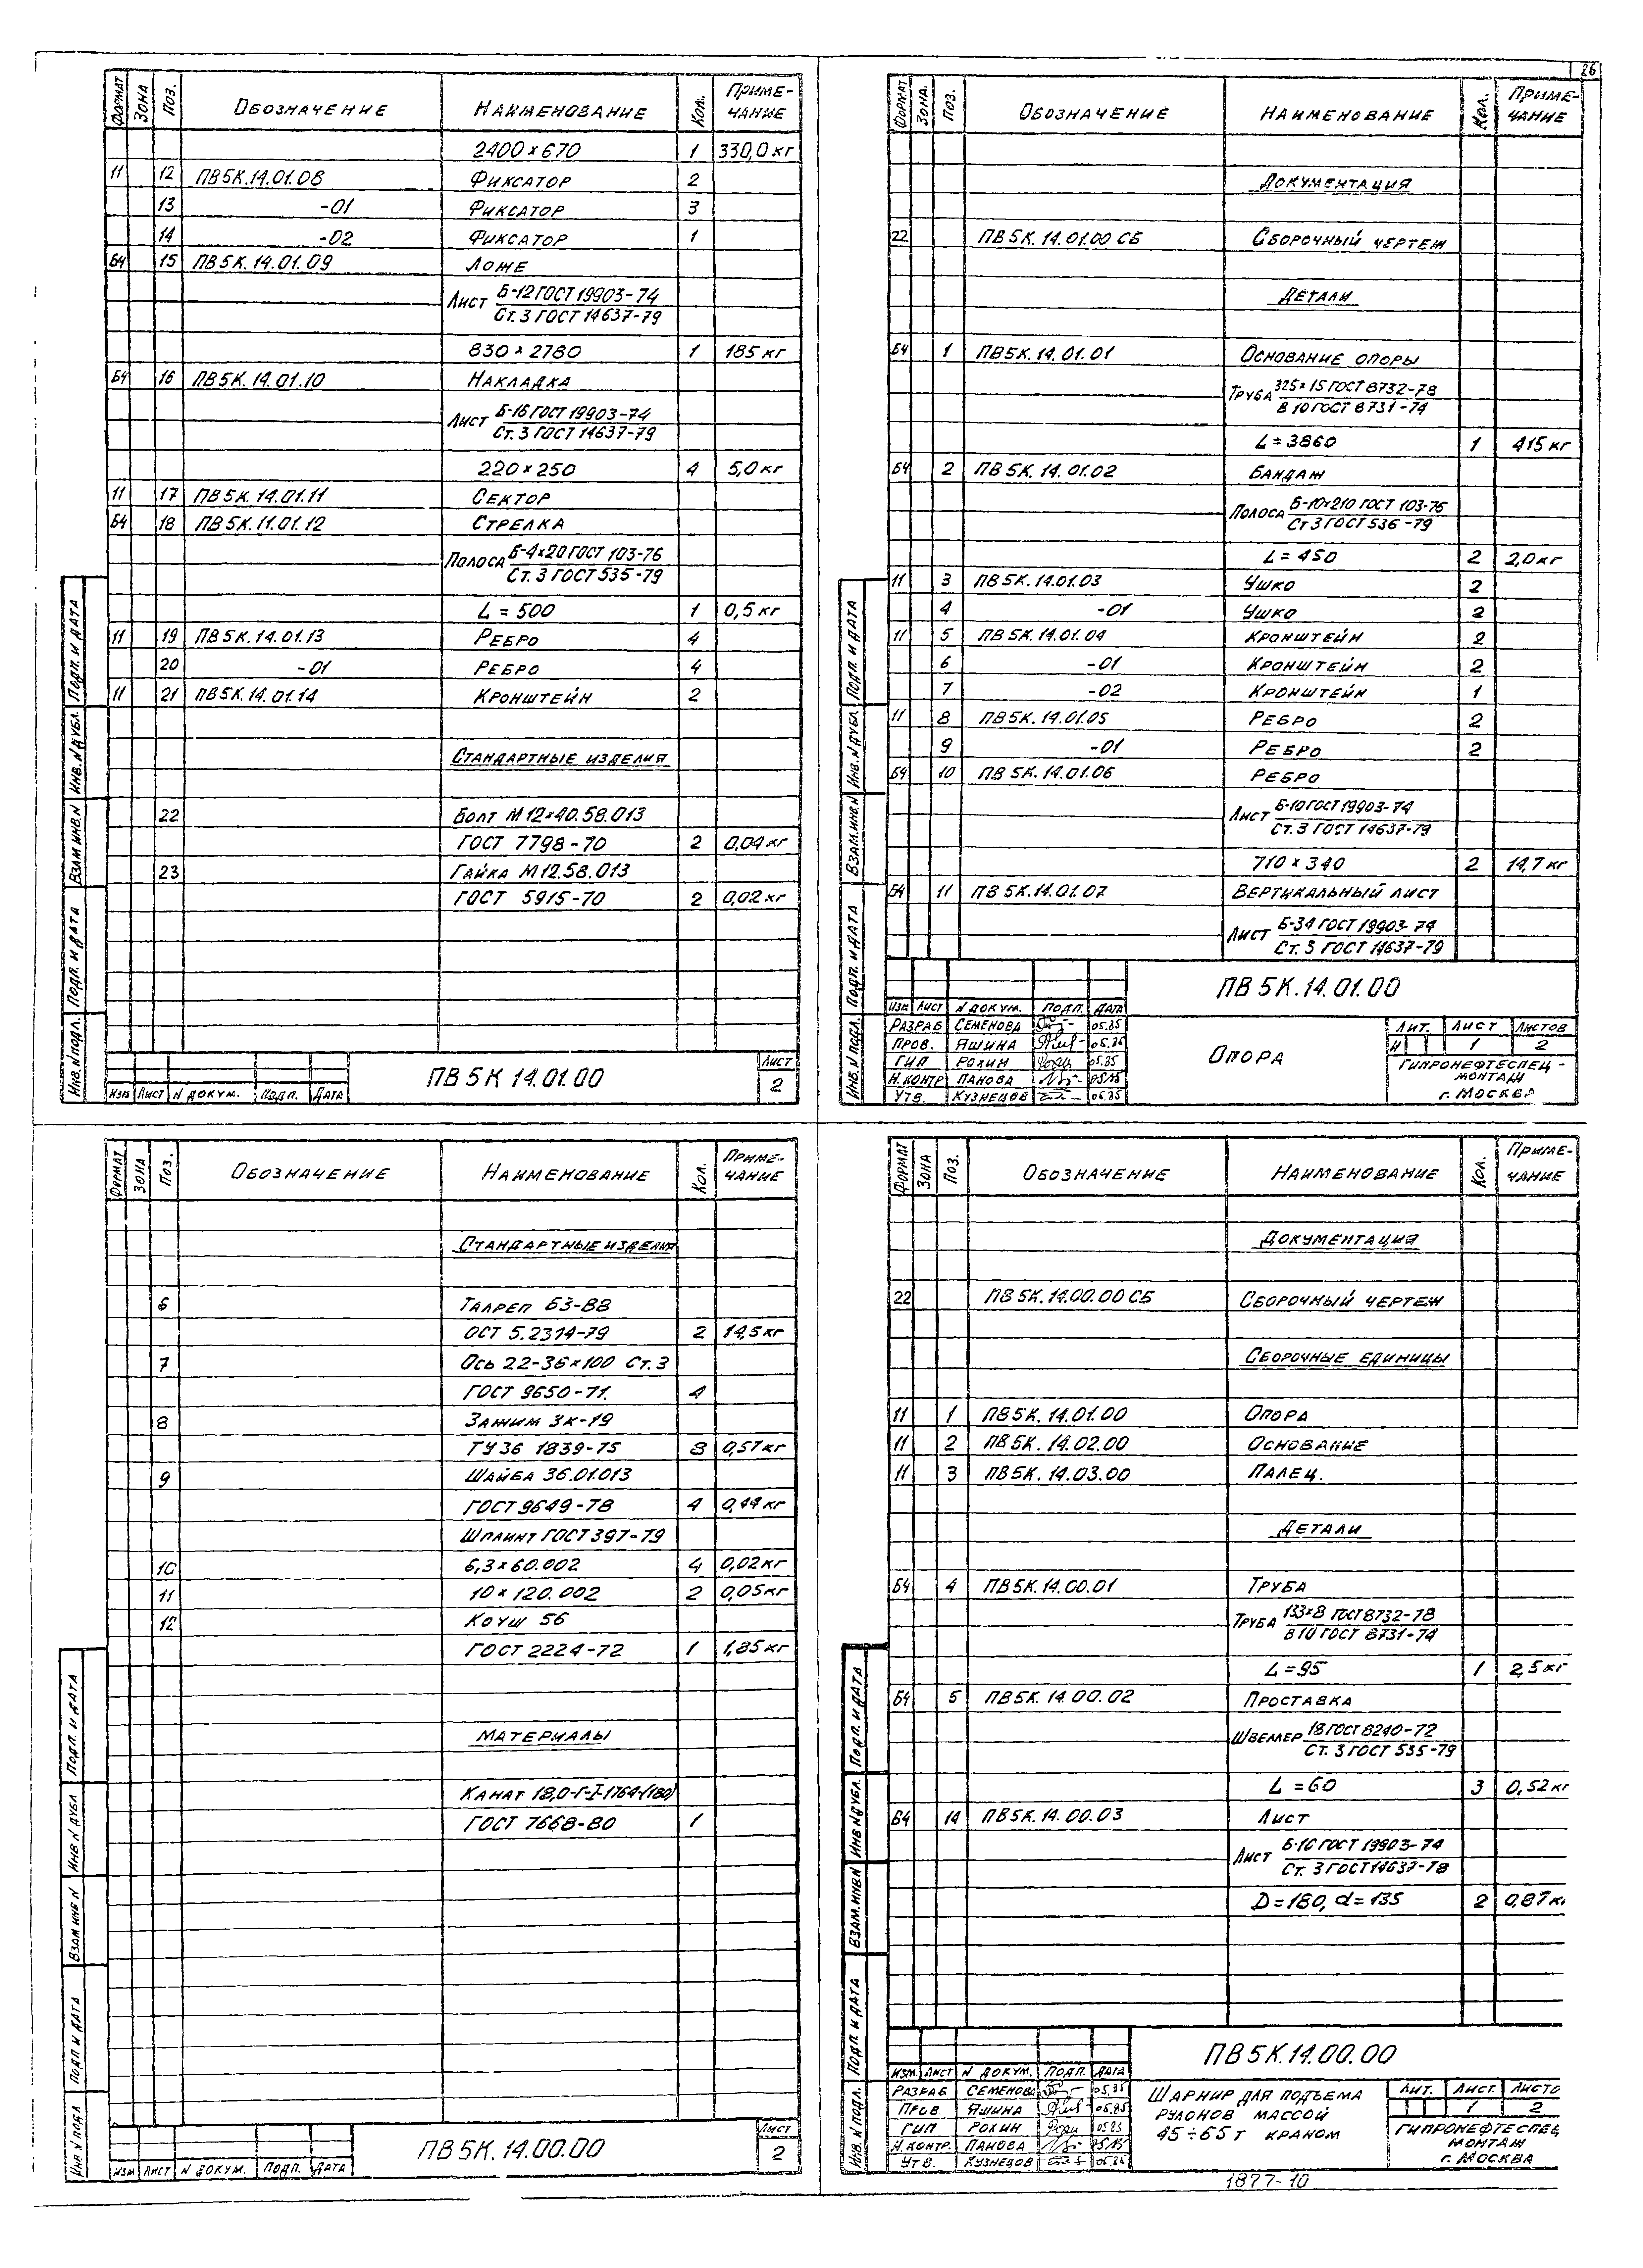 26
ФОРМАТ ЗОНА ПОЗ. ОБОЗНАЧЕНИЕ НАИМЕНОВАНИЕ КОЛ. ПРИМЕ-
ЧАНИЕ
2400×670 1 330,0 кг
11 12 ПВ5К.14.01.08 ФИКСАТОР 2
13 -01 ФИКСАТОР 3
14 -02 ФИКСАТОР 1
Б4 15 ПВ5К.14.01.09 ЛОЖЕ
ЛИСТ Б-12 ГОСТ 19903-74
СТ.3 ГОСТ 14637-79
830×2780 1 185 кг
Б4 16 ПВ5К.14.01.10 НАКЛАДКА
ЛИСТ Б-16 ГОСТ 19903-74
СТ.3 ГОСТ 14637-79
220×250 4 5,0 кг
11 17 ПВ5К.14.01.11 СЕКТОР
Б4 18 ПВ5К.11.01.12 СТРЕЛКА
ПОЛОСА Б-4×20 ГОСТ 103-76
СТ.3 ГОСТ 535-79
L = 500 1 0,5 кг
11 19 ПВ5К.14.01.13 РЕБРО 4
20 -01 РЕБРО 4
11 21 ПВ5К.14.01.14 КРОНШТЕЙН 2
СТАНДАРТНЫЕ ИЗДЕЛИЯ
22 БОЛТ М12×40.58.013
ГОСТ 7798-70 2 0,04 кг
23 ГАЙКА М12.58.013
ГОСТ 5915-70 2 0,02 кг
ИНВ. N ПОДЛ. ПОДП. И ДАТА ВЗАМ ИНВ. N ИНВ. N ДУБЛ. ПОДП. И ДАТА
ИЗМ ЛИСТ N ДОКУМ. ПОДП. ДАТА
ПВ5К 14.01.00
ЛИСТ
2
ФОРМАТ ЗОНА. ПОЗ. ОБОЗНАЧЕНИЕ НАИМЕНОВАНИЕ КОЛ. ПРИМЕ-
ЧАНИЕ
ДОКУМЕНТАЦИЯ
22 ПВ5К.14.01.00 СБ СБОРОЧНЫЙ ЧЕРТЕЖ
ДЕТАЛИ
Б4 1 ПВ5К.14.01.01 ОСНОВАНИЕ ОПОРЫ
ТРУБА 325×15 ГОСТ 8732-78
В 10 ГОСТ 8731-74
L = 3860 1 415 кг
Б4 2 ПВ5К.14.01.02 БАНДАЖ
ПОЛОСА Б-10×210 ГОСТ 103-76
СТ 3 ГОСТ 536-79
L = 450 2 2,0 кг
11 3 ПВ5К.14.01.03 УШКО 2
4 -01 УШКО 2
11 5 ПВ5К.14.01.04 КРОНШТЕЙН 2
6 -01 КРОНШТЕЙН 2
7 -02 КРОНШТЕЙН 1
11 8 ПВ5К.14.01.05 РЕБРО 2
9 -01 РЕБРО 2
Б4 10 ПВ5К.14.01.06 РЕБРО
ЛИСТ Б-10 ГОСТ 19903-74
СТ. 3 ГОСТ 14637-79
710×340 2 14,7 кг
Б4 11 ПВ5К.14.01.07 ВЕРТИКАЛЬНЫЙ ЛИСТ
ЛИСТ Б-34 ГОСТ 19903-74
СТ. 3 ГОСТ 14637-79
ИНВ. N ПОДЛ. ПОДП. И ДАТА ВЗАМ. ИНВ. N ИНВ. N ДУБЛ. ПОДП. И ДАТА
ПВ5К.14.01.00
ИЗМ ЛИСТ N ДОКУМ. ПОДП. ДАТА
РАЗРАБ СЕМЕНОВА 05.85
ПРОВ. ЯШИНА 05.85
ГИП РОХИН 05.85
Н.КОНТР ПАНОВА 05.85
УТВ. КУЗНЕЦОВ 05.85
ОПОРА
ЛИТ. ЛИСТ ЛИСТОВ
И 1 2
ГИПРОНЕФТЕСПЕЦ-
МОНТАЖ
г. МОСКВА
ФОРМАТ ЗОНА ПОЗ. ОБОЗНАЧЕНИЕ НАИМЕНОВАНИЕ КОЛ. ПРИМЕ-
ЧАНИЕ
СТАНДАРТНЫЕ ИЗДЕЛИЯ
6 ТАЛРЕП 63-ВВ
ОСТ 5.2314-79 2 14,5 кг
7 ОСЬ 22-36×100 СТ.3
ГОСТ 9650-71. 4
8 ЗАЖИМ ЗК-19
ТУ 36 1839-75 8 0,57 кг
9 ШАЙБА 36.01.013
ГОСТ 9649-78 4 0,44 кг
ШПЛИНТ ГОСТ 397-79
10 6,3×60.002 4 0,02 кг
11 10×120.002 2 0,05 кг
12 КОУШ 56
ГОСТ 2224-72 1 1,85 кг
МАТЕРИАЛЫ
КАНАТ 18,0-Г-I-1764(180)
ГОСТ 7668-80 1
ИНВ N ПОДЛ ПОДП И ДАТА ВЗАМ ИНВ N ИНВ N ДУБЛ ПОДП. И ДАТА
ИЗМ ЛИСТ N ДОКУМ. ПОДП. ДАТА
ПВ5К.14.00.00
ЛИСТ
2
ФОРМАТ ЗОНА ПОЗ. ОБОЗНАЧЕНИЕ НАИМЕНОВАНИЕ КОЛ. ПРИМЕ-
ЧАНИЕ
ДОКУМЕНТАЦИЯ
22 ПВ5К.14.00.00 СБ СБОРОЧНЫЙ ЧЕРТЕЖ
СБОРОЧНЫЕ ЕДИНИЦЫ
11 1 ПВ5К.14.01.00 ОПОРА
11 2 ПВ5К.14.02.00 ОСНОВАНИЕ
11 3 ПВ5К.14.03.00 ПАЛЕЦ.
ДЕТАЛИ
Б4 4 ПВ5К.14.00.01 ТРУБА
ТРУБА 133×8 ГОСТ 8732-78
В 10 ГОСТ 8731-74
L = 95 1 2,5 кг
Б4 5 ПВ5К.14.00.02 ПРОСТАВКА
ШВЕЛЛЕР 18 ГОСТ 8240-72
СТ. 3 ГОСТ 535-79
L = 60 3 0,52 кг
Б4 14 ПВ5К.14.00.03 ЛИСТ
ЛИСТ Б-10 ГОСТ 19903-74
СТ. 3 ГОСТ 14637-78
D = 180, d = 135 2 0,87 кг
ИНВ. N ПОДЛ. ПОДП. И ДАТА ВЗАМ. ИНВ. N ИНВ N ДУБЛ. ПОДП. И ДАТА
ПВ5К.14.00.00
ИЗМ. ЛИСТ N ДОКУМ. ПОДП. ДАТА
РАЗРАБ СЕМЕНОВА 05.85
ПРОВ. ЯШИНА 05.85
ГИП РОХИН 05.85
Н.КОНТР. ПАНОВА 05.85
УТВ. КУЗНЕЦОВ 05.85
ШАРНИР ДЛЯ ПОДЪЕМА
РУЛОНОВ МАССОЙ
45÷65 т КРАНОМ
ЛИТ. ЛИСТ. ЛИСТО
1 2
ГИПРОНЕФТЕСПЕЦ
МОНТАЖ
г. МОСКВА
1877-10